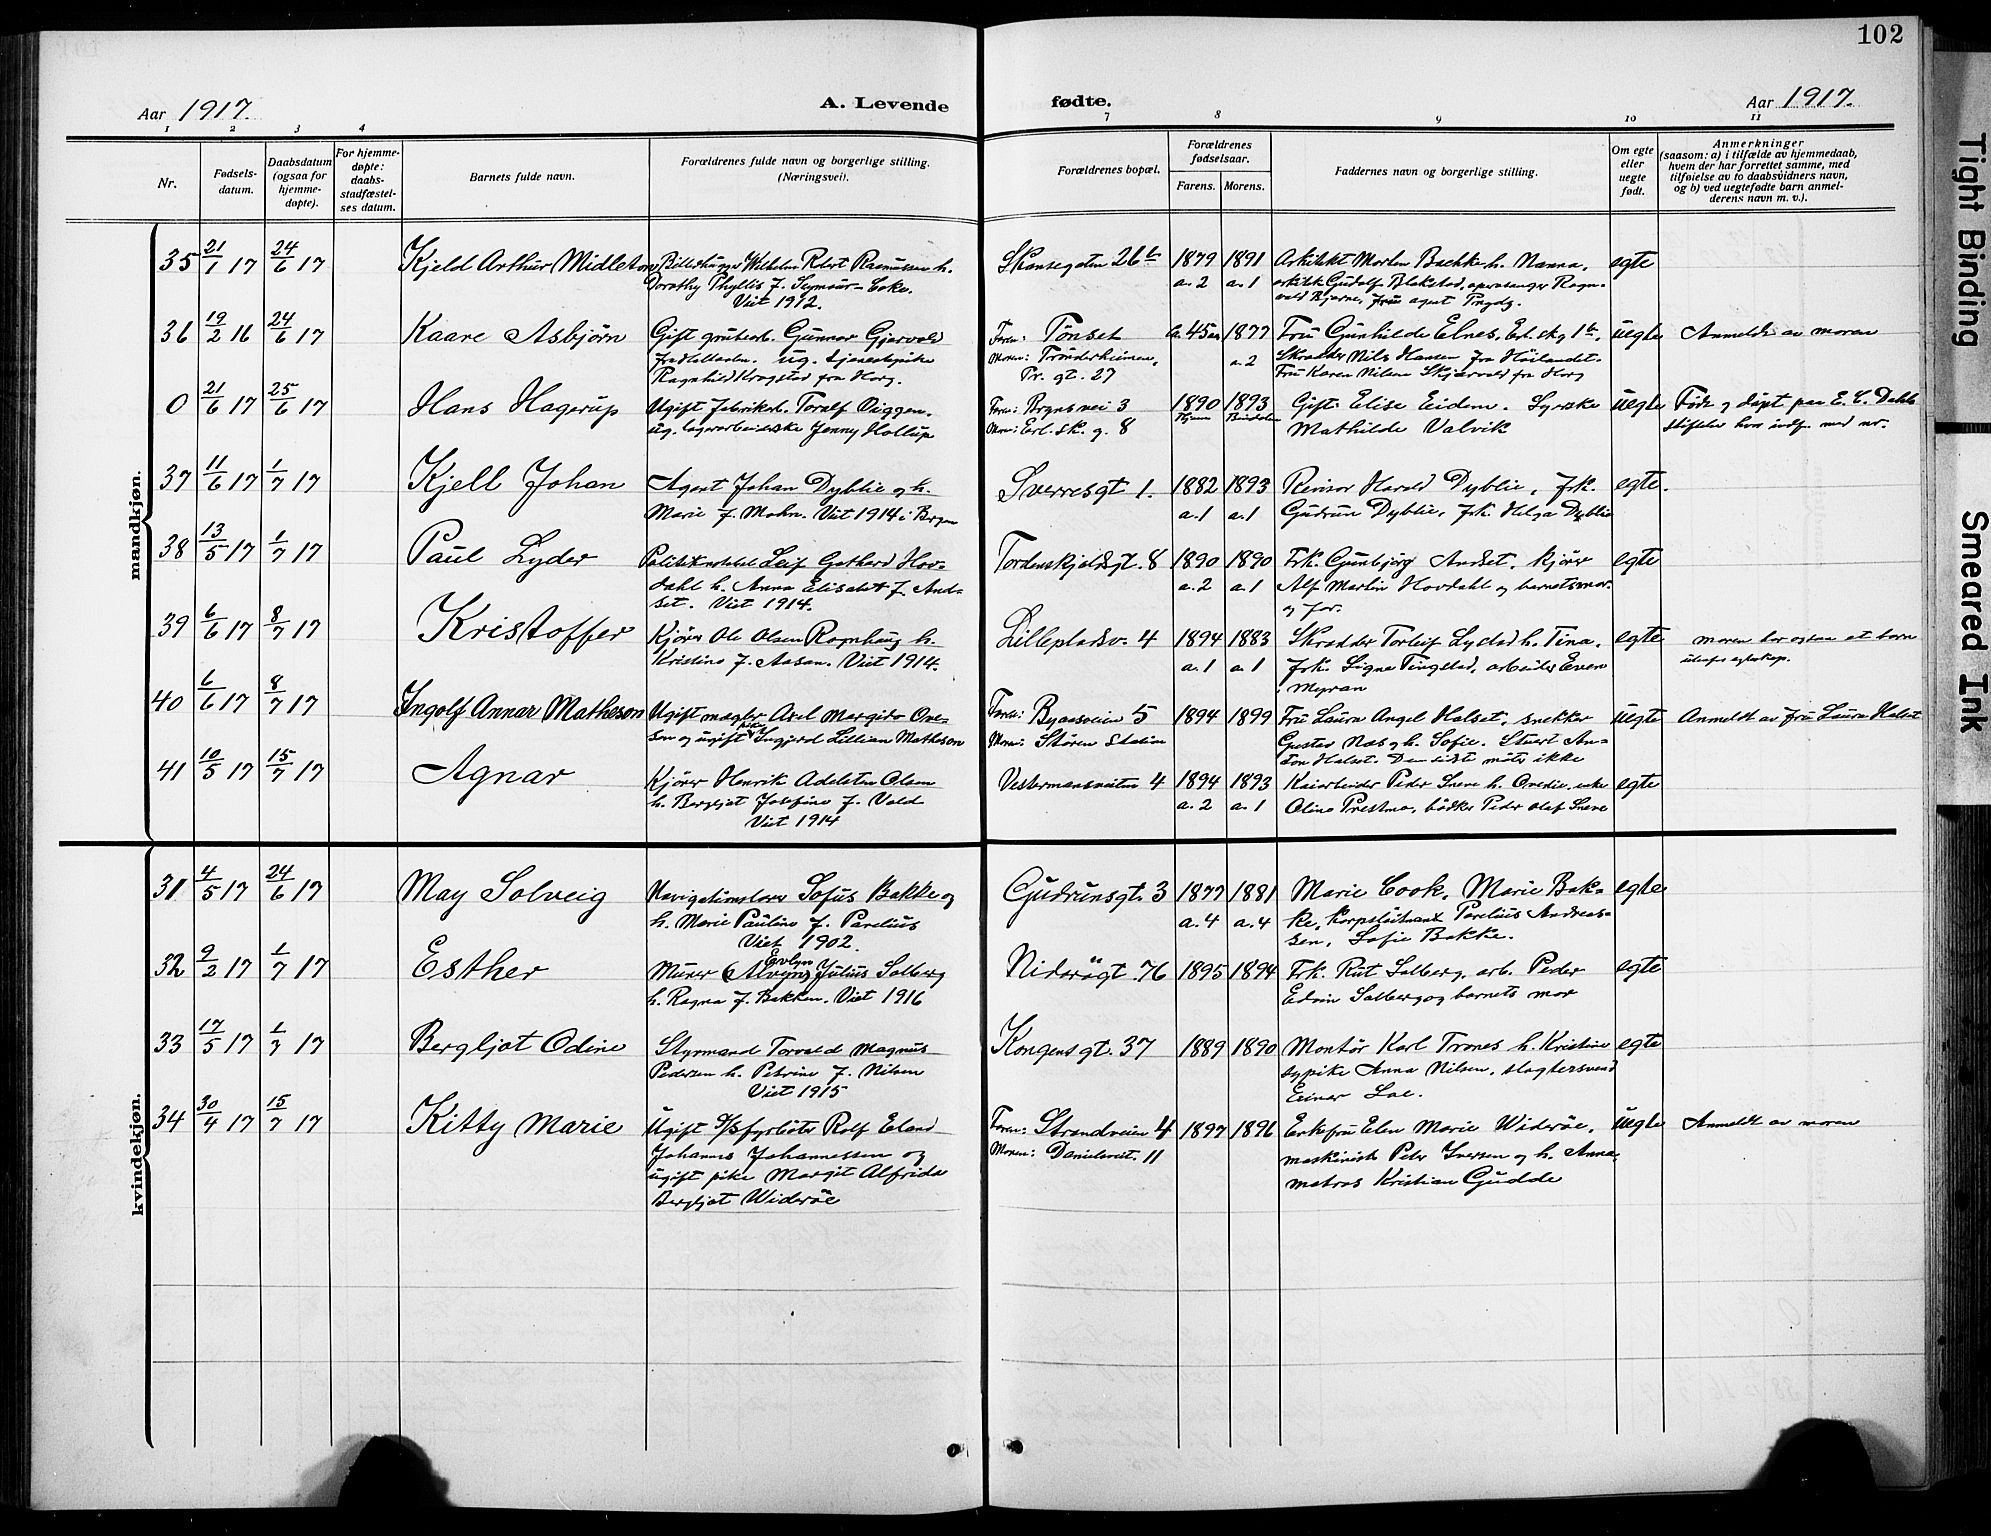 102
Aar 1917.
A. Levende
fødte.
Aar 1917.
1 2 3 4 7 8 9 10 11
Nr.
Fødsels-
datum.
Daabsdatum
(ogsaa for
hjemme-
døpte).
For hjemme-
døpte:
daabs-
stadfæstel-
ses datum.
Barnets fulde navn.
Forældrenes fulde navn og borgerlige stilling.
(Næringsvei).
Forældrenes bopæl.
Forældrenes
fødselsaar.
Farens. Morens.
Faddernes navn og borgerlige stilling.
Om egte
eller
uegte
født.
Anmerkninger
(saasom: a) i tilfælde av hjemmedaab,
hvem der har forrettet samme, med
tilføielse av to daabsvidners navn,
og b) ved uegtefødte barn anmel-
derens navn m. v.).
mandkjøn.
35 21/1 17 24/6 17 Kjeld Arthur Midleton Billedhugger Wilhelm Robert Rasmussen h. Skansegaten 26b 1879 1891 Arkitekt Morten Bachke h. Nanna, egte
Dorothy Phyllis f. Seymour-Coke. a. 2 a. 1 arkitekt Gudolf Blakstad, operasanger Ragn-
Viet 1912 vald Bjerne, fru agent
36 19/2 16 24/6 17 Kaare Asbjørn Gift grubearb. Gunnar Gjervold Faren: Tønset ca. 45 aar 1877 Fru Gunhilde Elnes, Erl. sk. g. 1b, uegte Anmeldt av moren
ug. tjenestepike Moren: Trønderheimen, a. 2 Skrædder Nils Hansen fra Høilandet.
Ragnhild Krogstad fra Horg. Pr. gt. 27 Fru Karen Nilsen Skjervold fra Horg
0 21/6 17 25/6 17 Hans Hagerup Ugift fabrikarb. Toralf Diggen. Faren: Brynsvei 3 1890 1893 Gift: Elise Eidem. Syerske uegte Født og døpt paa E. C. Dahls
ug. lagerarbeiderske Jenny Hollup Moren: Erl. sk. g. 8 Mathilde Valvik stiftelse
37 11/6 17 1/7 17 Kjell Johan Agent Johan Dyblie og h. Sverresgt 1. 1882 1893 Revisor Harald Dyblie, frk. egte.
Marie f. Mohn. Viet 1914 i Bergen a. 1 a. 1 Gudrun Dyblie, frk. Helga Dyblie
38 13/5 17 1/7 17 Paul Lyder Politikonstabel Leif Gothard Hov- Tordenskjoldsgt. 8 1890 1890 Frk. Gunbjørg Andset, kjører egte
dahl h. Anna Elisabet f. And- a. 2 a. 1 Alf Martin Hovdahl og barnets mor
set. Viet 1914. og far.
39 6/6 17 8/7 17 Kristoffer Kjører Ole Olsen Rognhaug h. Lillepladsv. 4 1894 1883 Skrædder Torleif Lystad h. Tina, egte moren har ogsaa et barn
Kristine f. Aasan. Viet 1914. a. 1 a. 1 frk. Signe Tingstad, arbeider Even utenfor egteskap.
Myran
40 6/6 17 8/7 17 Ingolf Annar Matheson Ugift mægler Axel Margido Ove- Faren: Byaasveien 5 1894 1899 Fru Laura Angel Halset, snekker uegte Anmeldt av fru Laura Halset
sen og ugift pike Ingjerd Lillian Matheson Moren: Støren Station Gustav Næs og h. Sofie. Stuert An-
ton Halset. Den sidste møtte ikke
41 10/5 17 15/7 17 Agnar Kjører Henrik Adelsten Olsen Vestermansveiten 4 1894 1893 Kaiarbeider Peder Sneve h. Ovedie, enke egte
h. Bergljot Josefine f. Vold a. 2 a. 1 Oline Prestmo, bødker Peder Olaf Sneve
Viet 1914
kvindekjøn.
31 4/5 17 24/6 17 May Solveig Navigationslærer Sofus Bakke og Gudrunsgt. 3 1877 1881 Marie Cook, Marie Bak- egte
h. Marie Pauline f. Parelius a. 4 a. 4 ke, Korpsløitnant Parelius Andreas-
Viet 1902. sen, Sofie Bakke.
32 9/2 17 1/7 17 Esther Murer (Alvyn) Evlyn Julius Solberg Nidarøgt 76 1895 1894 Frk. Rut Solberg, arb. Peder egte
h. Ragna f. Bakken. Viet 1916 Edvin Solberg og barnets mor
33 17/5 17 1/7 17 Bergljot Odine Styrmand Torvald Magnus Kongensgt. 37 1889 1890 Montør Karl Trones h. Kristine egte
Pedersen h. Petrine f. Nilsen sypike Anna Nilsen, slagtersvend
Viet 1915 Einar Loe.
34 30/4 17 15/7 17 Kitty Marie Ugift D/S fyrbøter Rolf Eland Faren: Strandveien 4 1897 1896 Enkefru Elen Marie Widerøe, uegte Anmeldt av moren
Johannes Johannessen og Moren: Danielsveit. 11 maskinist Peter Iversen og h. Anna,
ugift pike Margit Alfrida matros Kristian Gudde
Bergljot Widerøe
Tight Binding
Smeared Ink